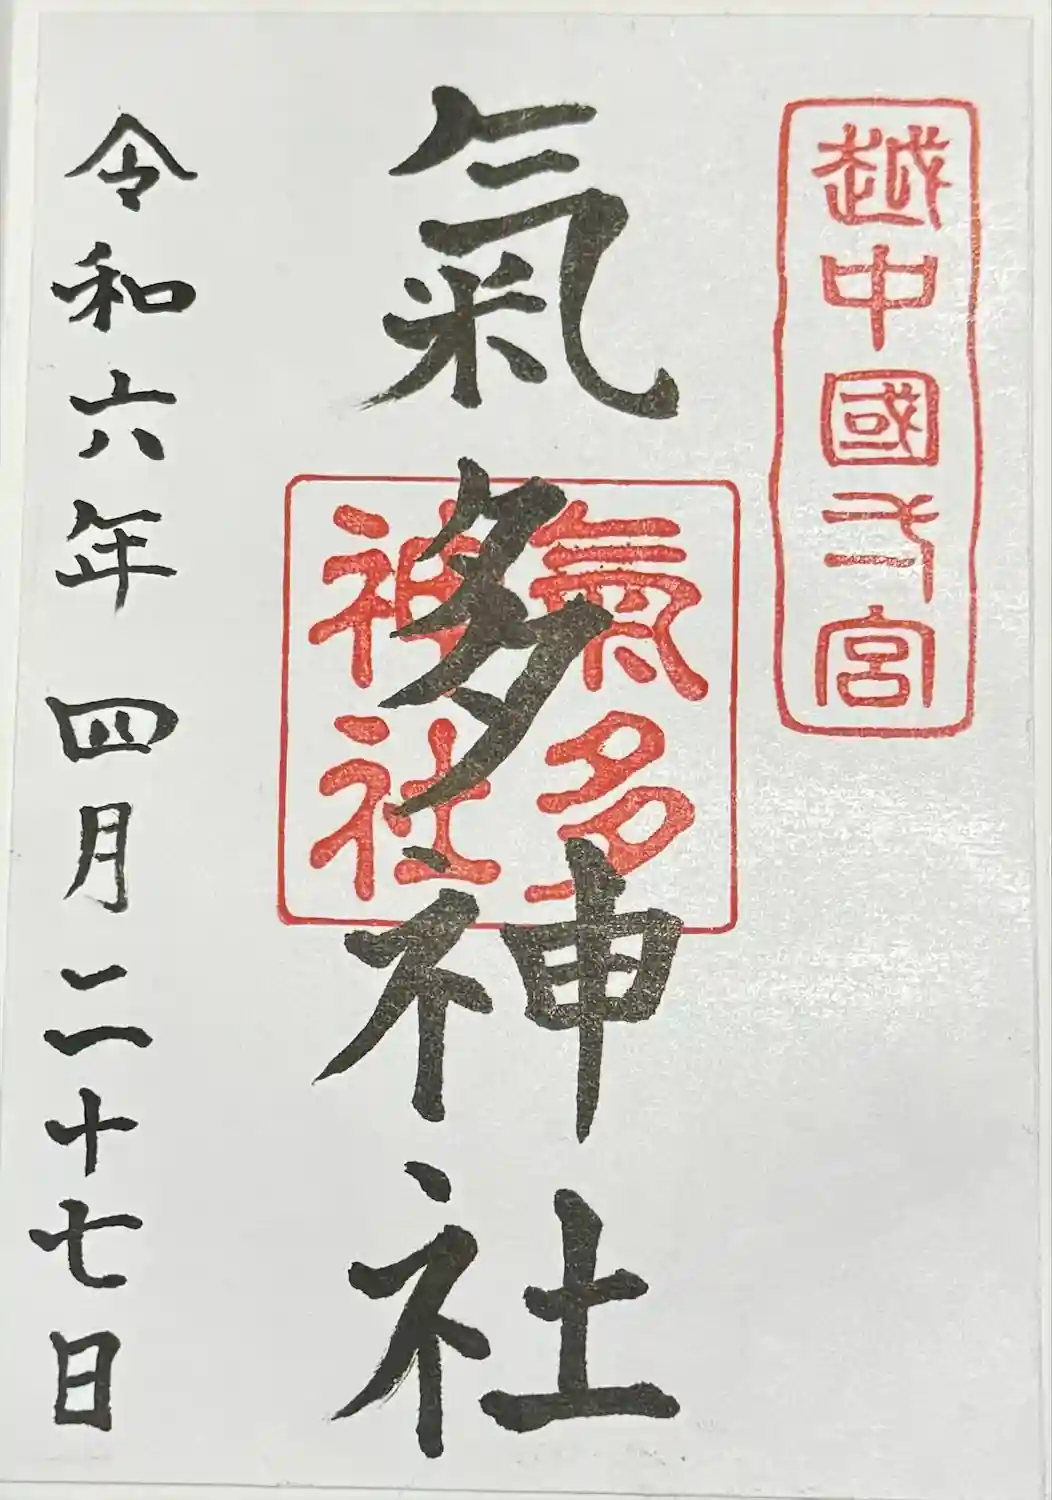 越中國一宮
氣多神社
氣多
神社
令和六年 四月二十七日